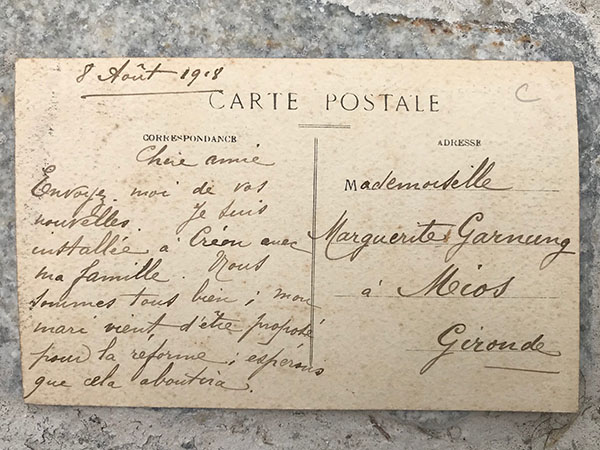 8 Août 1918
CARTE POSTALE
C
CORRESPONDANCE
Chère amie
Envoyez-moi de vos
nouvelles. Je suis
installée à Créon avec
ma famille. Nous
sommes tous bien ; mon
mari vient d'être proposé
pour la réforme ; espérons
que cela aboutira.
ADRESSE
Mademoiselle
Marguerite Garnung
à Mios
Gironde